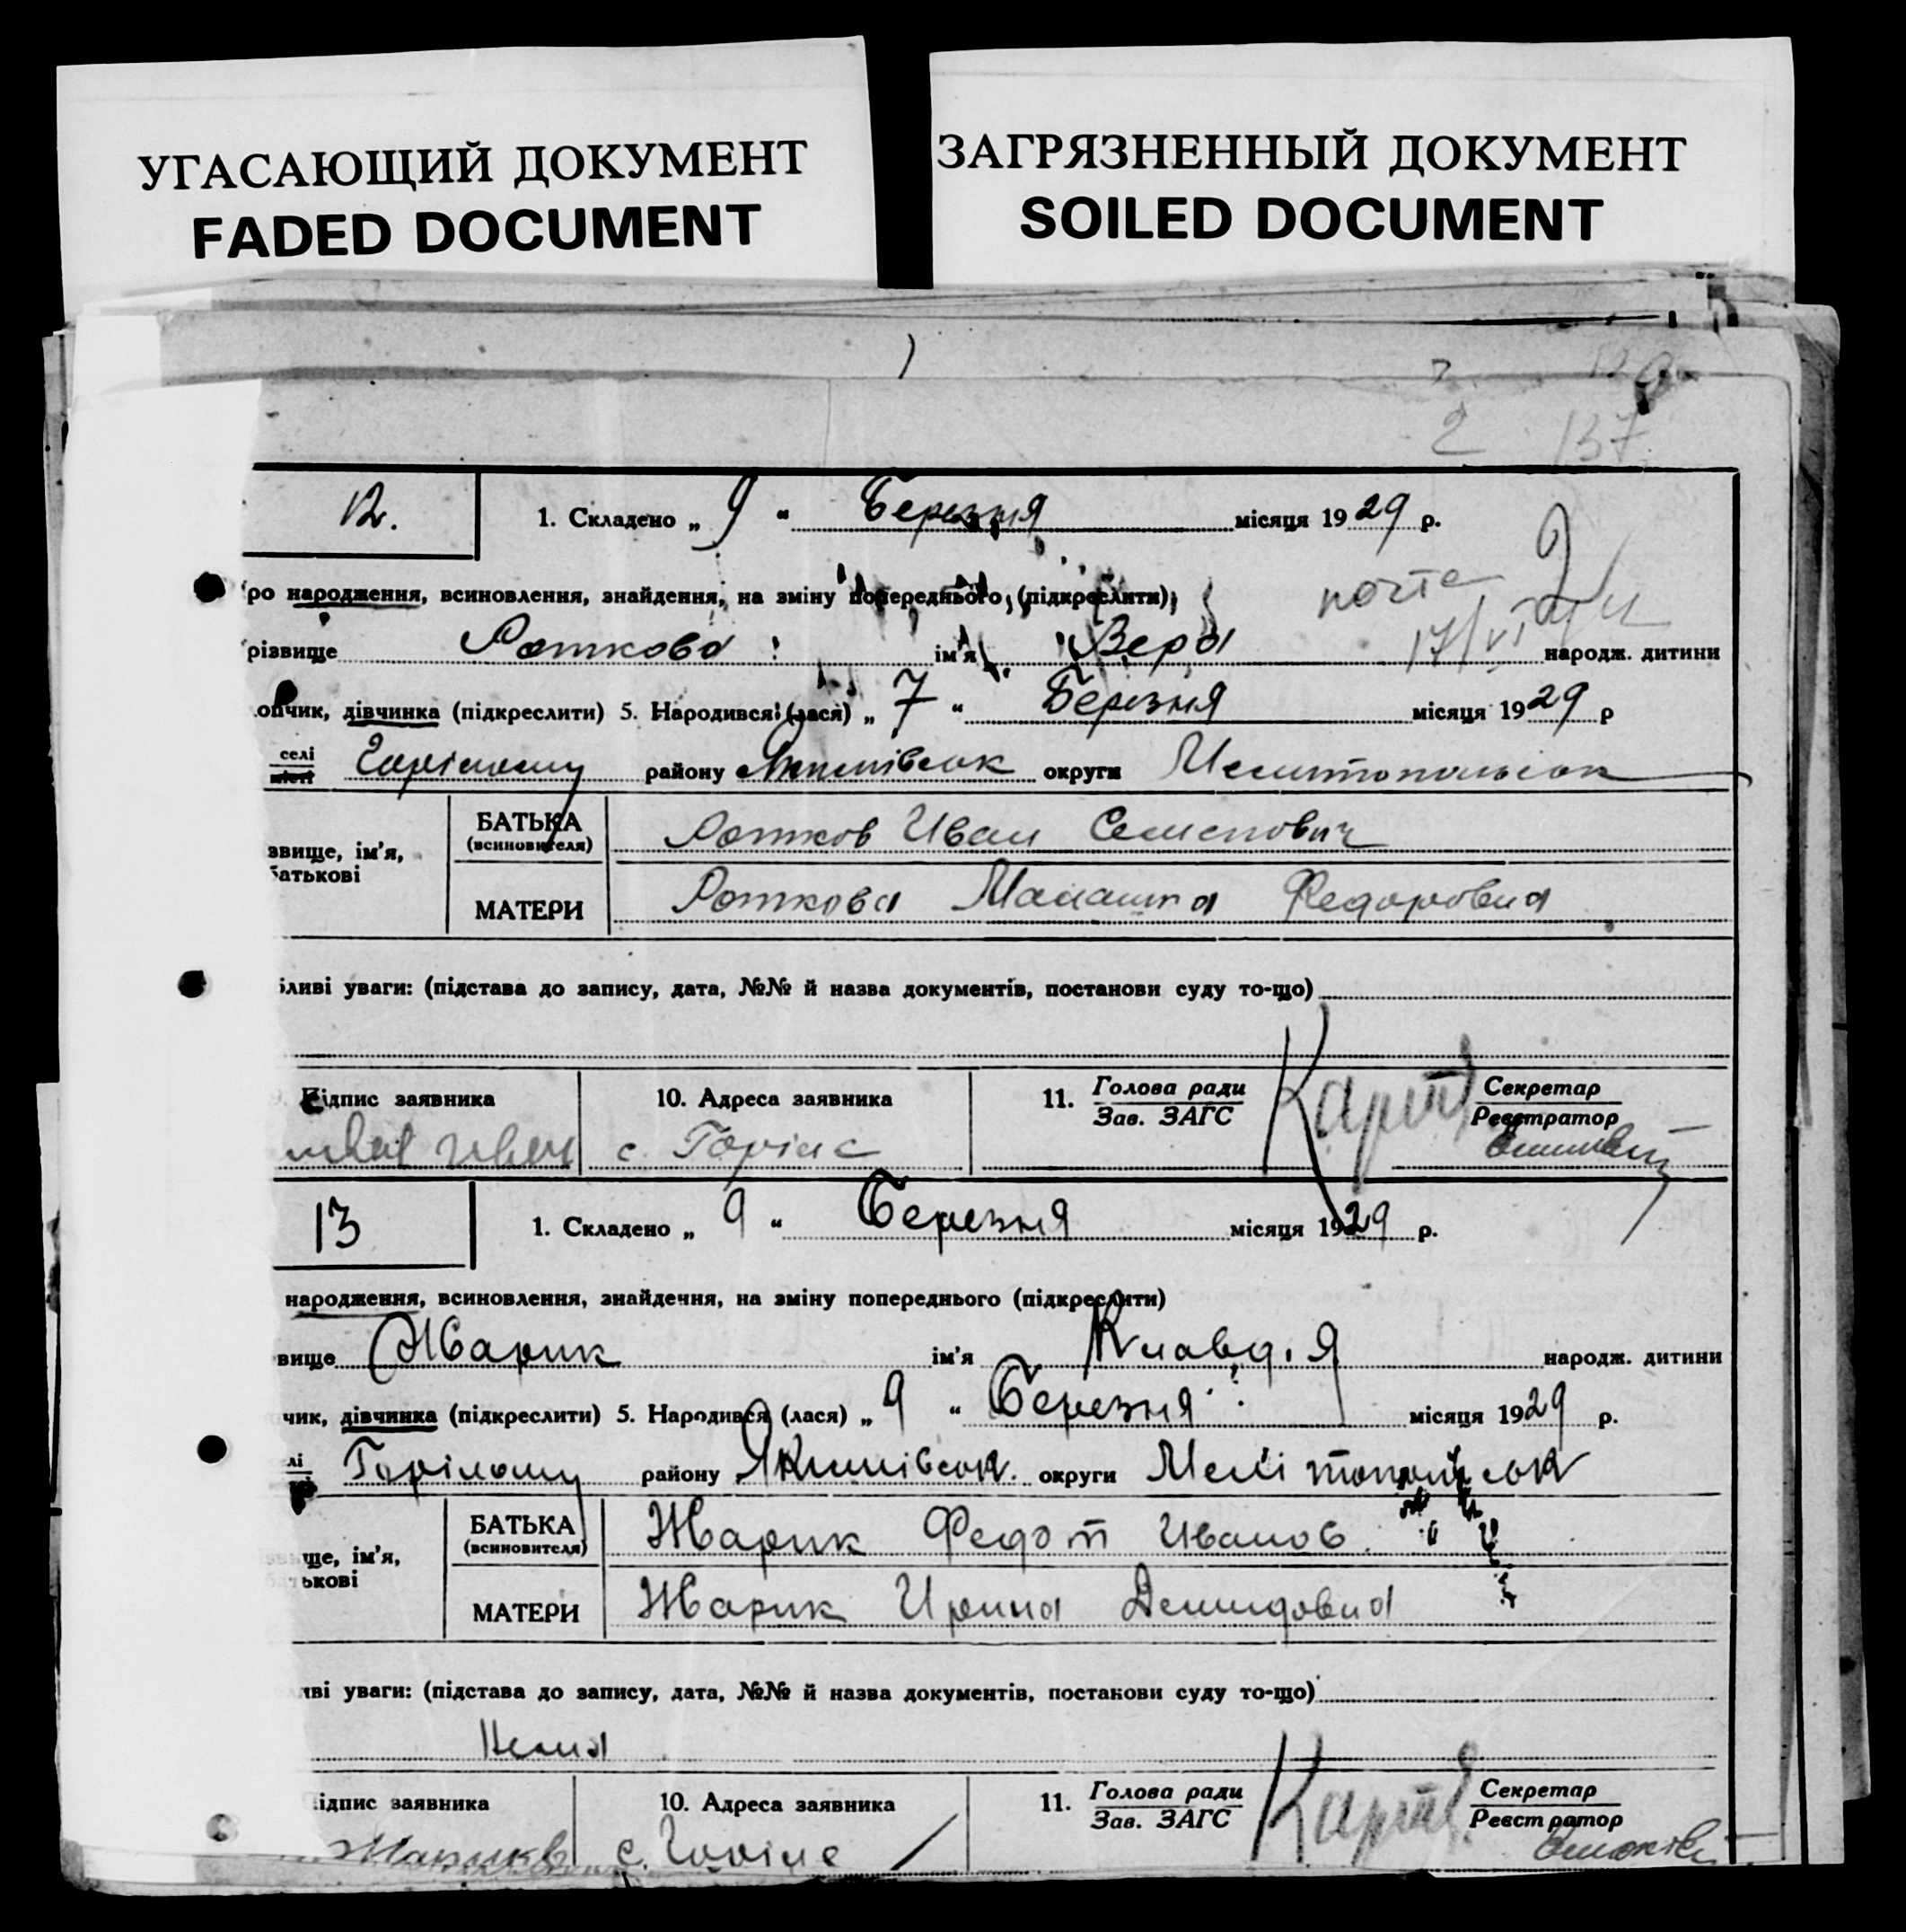 УГАСАЮЩИЙ ДОКУМЕНТ
FADED DOCUMENT
ЗАГРЯЗНЕННЫЙ ДОКУМЕНТ
SOILED DOCUMENT
2 137
12.
1. Складено „ 9 “ Березня місяця 1929 р.
ро народження, всиновлення, знайдення, на зміну попереднього (підкреслити)
17/VI
різвище Роткова ім'я Вера народж. дитини
опчик, дівчинка (підкреслити) 5. Народився (лася) „ 7 “ Березня місяця 1929 р
селі
місті
Горілому району Якимівськ округи Мелитопольськ
звище, ім'я,
батькові
БАТЬКА
(всиновителя)
Ротков Иван Семенович
МАТЕРИ
Роткова Маланка Федоровна
ливі уваги: (підстава до запису, дата, №№ й назва документів, постанови суду то-що)
9. Підпис заявника
10. Адреса заявника
с. Горіле
11. Голова ради
Зав. ЗАГС
Секретар
Реєстратор
13
1. Складено „ 9 “ Березня місяця 1929 р.
народження, всиновлення, знайдечня, на зміну попереднього (підкреслити)
вище Жарик ім'я Клавдія народж. дитини
чик, дівчинка (підкреслити) 5. Народився (лася) „ 9 “ Березня місяця 1929 р.
лі
Горілому району Якимівськ. округи Мелітопольськ
ще, ім'я,
ькові
БАТЬКА
(всиновителя)
Жарик Федот Иванов.
МАТЕРИ
Жарик Ирина Демидовна
иві уваги: (підстава до запису, дата, №№ й назва документів, постанови суду то-що)
Нема
ідпис заявника
10. Адреса заявника
с. Горіле
11. Голова ради
Зав. ЗАГС
Секретар
Реєстратор